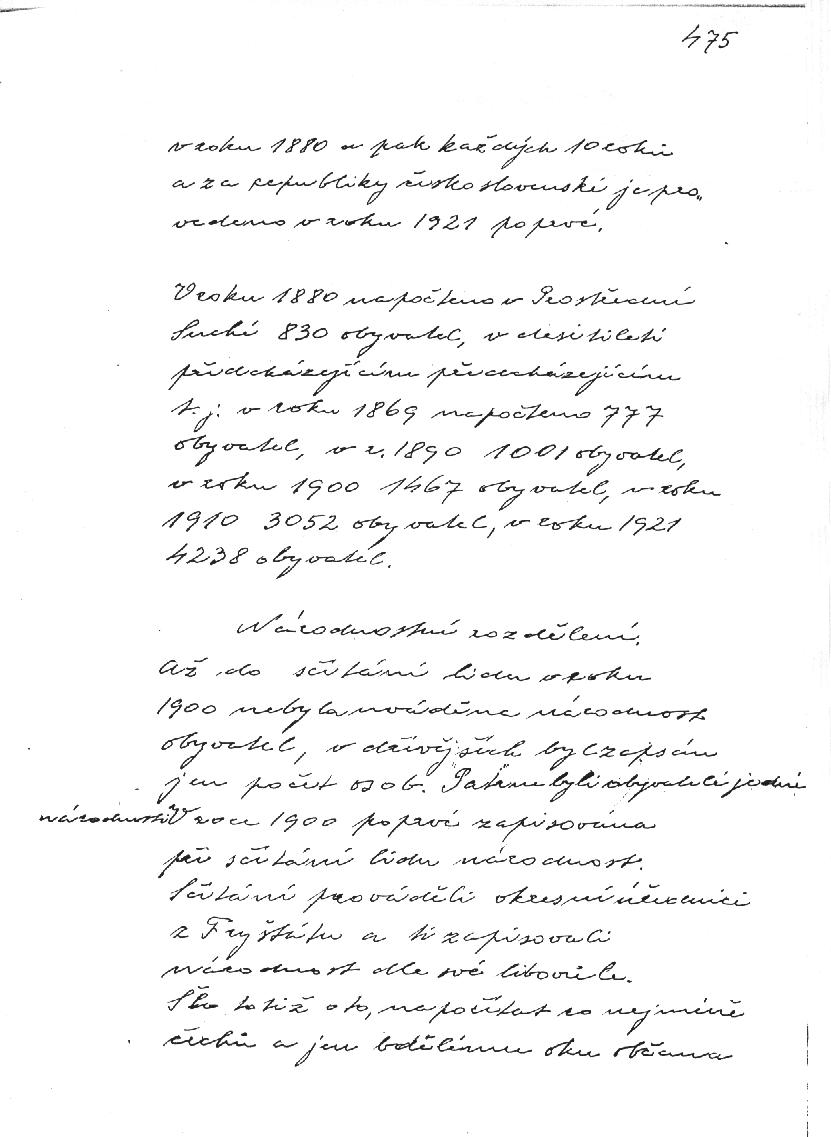 475
v roku 1880 a pak každých 10 roků
a za republiky československé je pro„
vedeno v roku 1921 poprvé.
V roku 1880 napočteno v Prostřední
Suché 830 obyvatel, v desitiletí
předcházejícím předcházejícím
t. j. v roku 1869 napočteno 777
obyvatel, v r. 1890 1001 obyvatel,
v roku 1900 1467 obyvatel, v roku
1910 3052 obyvatel, v roku 1921
4238 obyvatel.
Národnostní rozdělení.
Až do sčítání lidu v roku
1900 nebyla uváděna národnost
obyvatel, v dřívějších byl zapsán
jen počet osob. "Patrně byli obyvatelé jedné
národnosti" V roce 1900 poprvé zapisována
při sčítání lidu národnost.
Sčítání prováděli okresní úředníci
z Fryštátu a ti zapisovali
národnost dle své libovůle.
Šlo totiž o to, napočítat co nejméně
čechů a jen bdělému oku občana